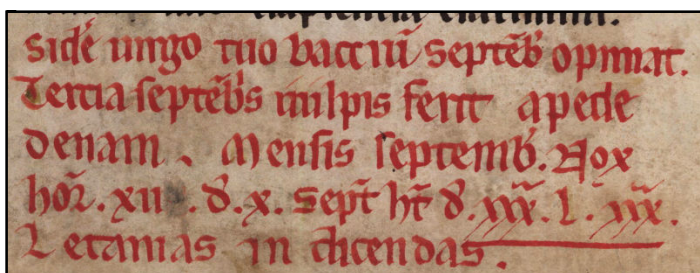 Sidē uirgo tuo bacciū septēb' opimat.
Tercia septēb's uulpis ferit a pede
denam . Mensis septemb'. Nox
hor̄. xii . d'. x. Sept̄ ht̄ d'. xxx. L. xxx.
Letanias in dicendas.